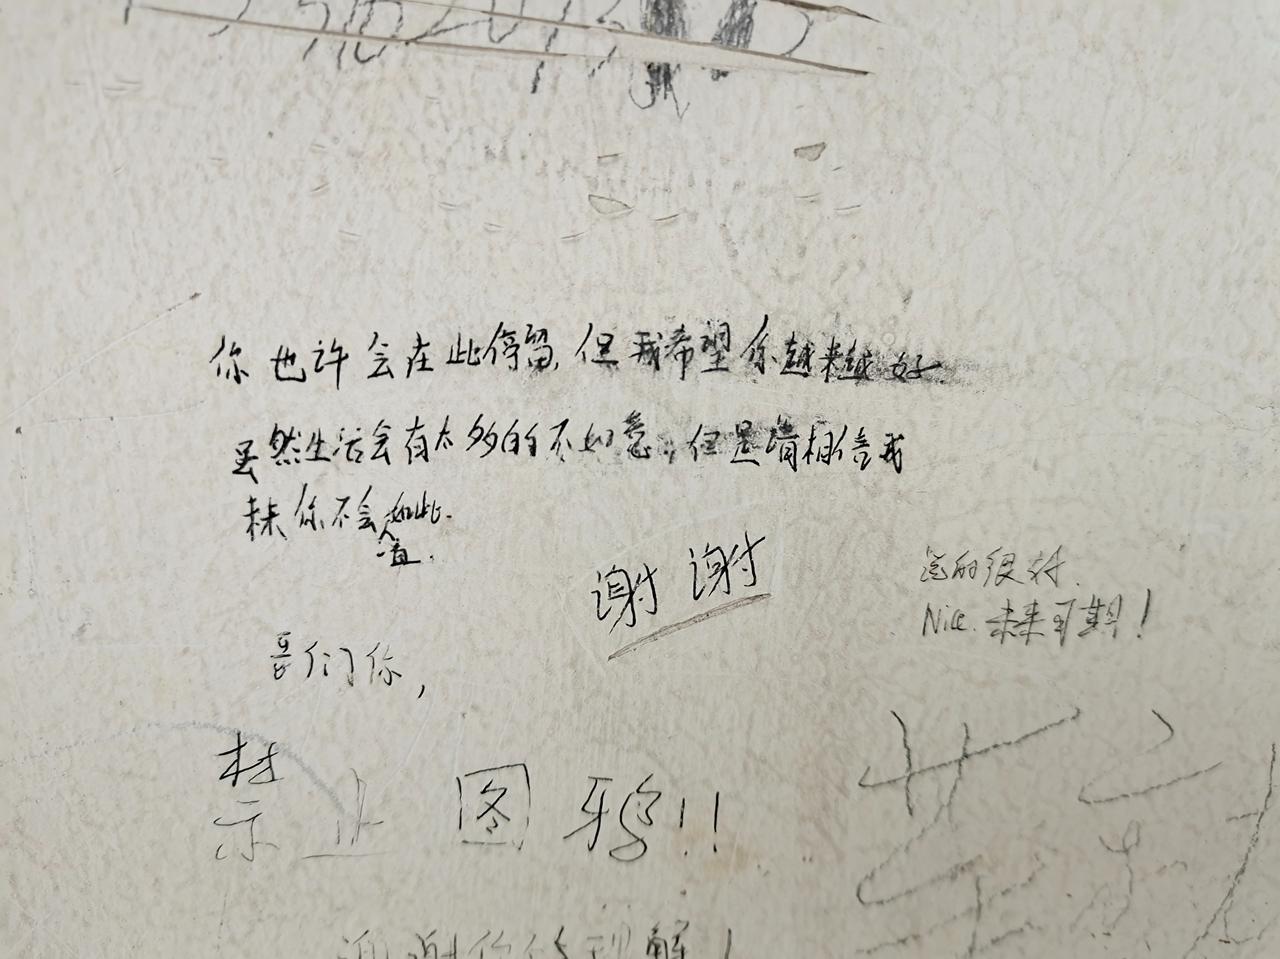 你也许会在此停留,但我希望你越来越好.
虽然生活会有太多的不如意,但是请相信我
未来你不会如此.
一直.
谢谢
说的很好.
Nice.未来可期!
哥们你,
禁止图鸦!!
谢谢你的理解!